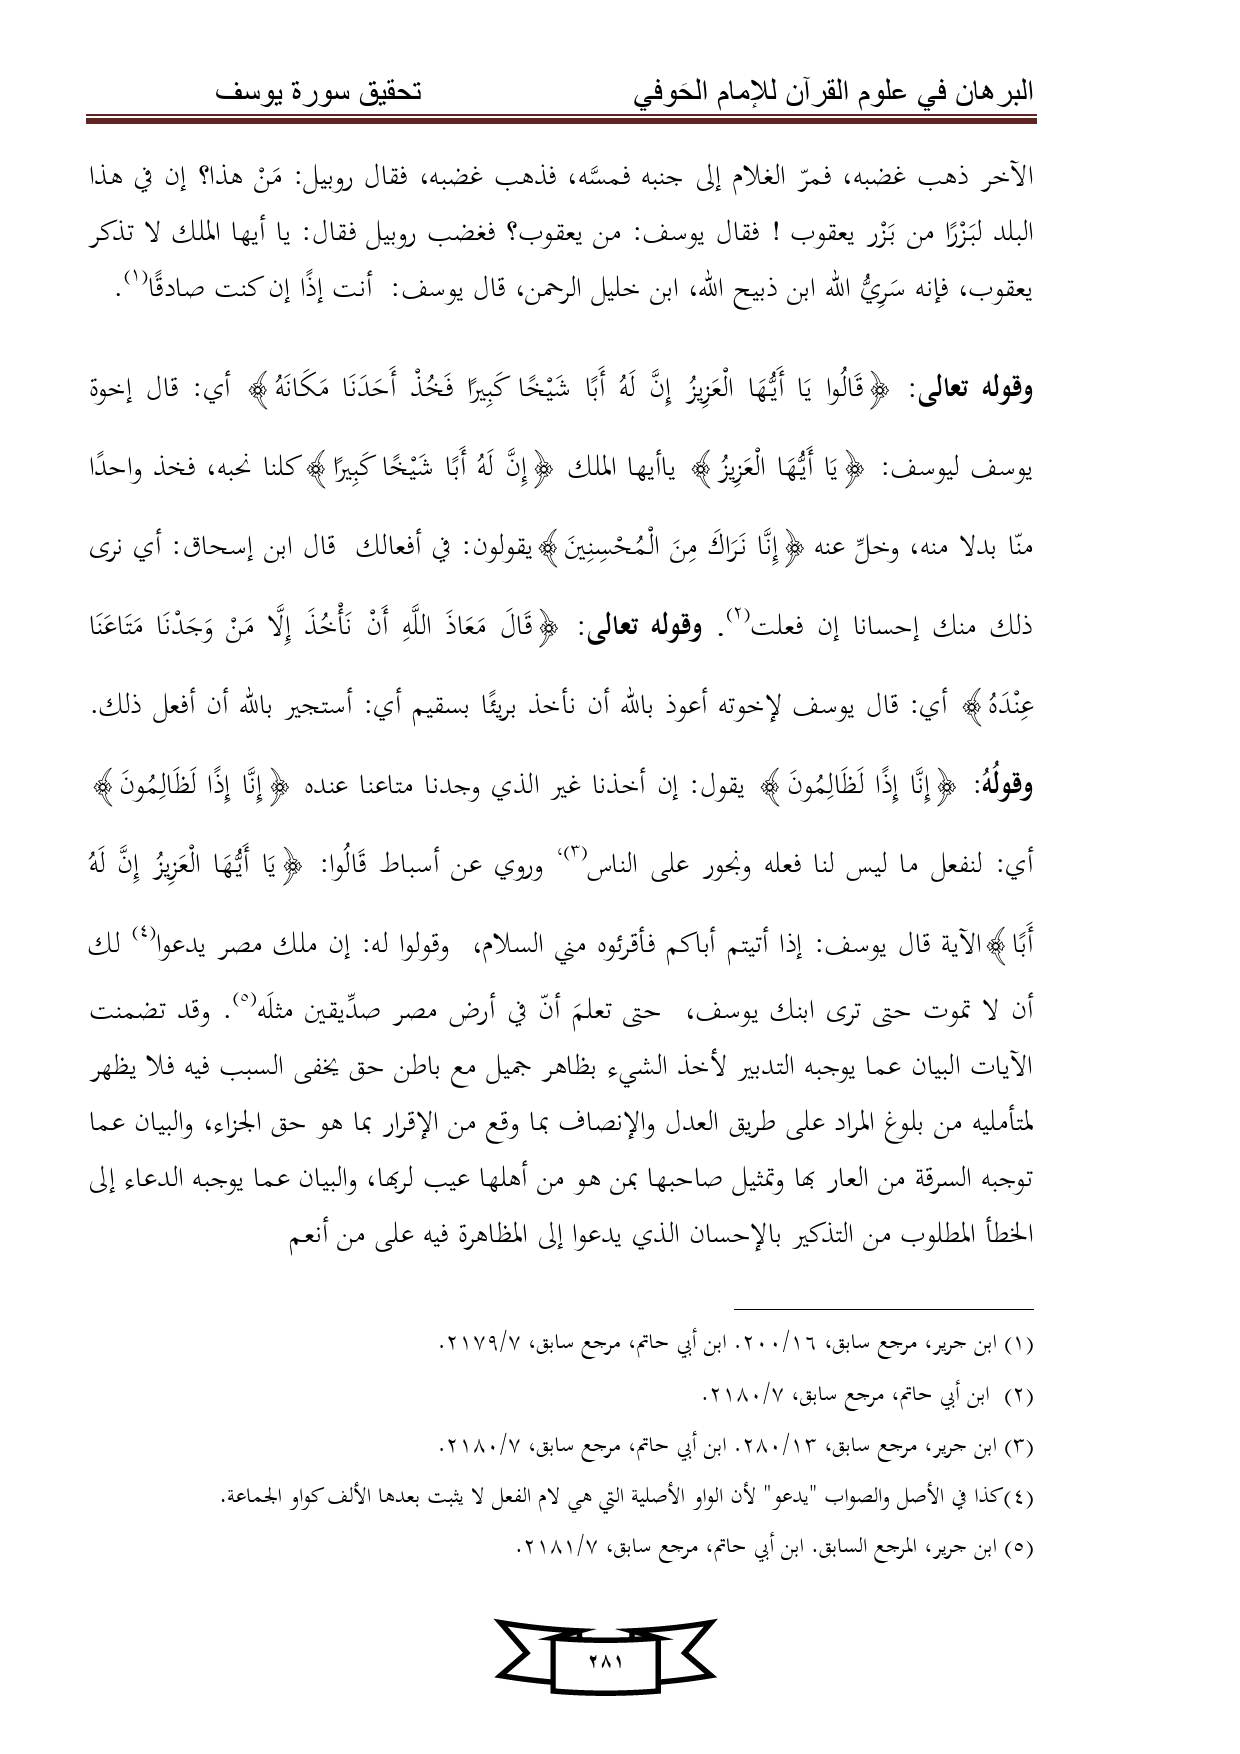 البرهان في علوم القرآن للإمام الحَوفي تحقيق سورة يوسف
الآخر ذهب غضبه، فمرّ الغلام إلى جنبه فمسَّه، فذهب غضبه، فقال روبيل: مَنْ هذا؟ إن في هذا
البلد لبَزْرًا من بَزْر يعقوب ! فقال يوسف: من يعقوب؟ فغضب روبيل فقال: يا أيها الملك لا تذكر
يعقوب، فإنه سَرِيُّ الله ابن ذبيح الله، ابن خليل الرحمن، قال يوسف: أنت إذًا إن كنت صادقًا(١).
وقوله تعالى: ﴿قَالُوا يَا أَيُّهَا الْعَزِيزُ إِنَّ لَهُ أَبًا شَيْخًا كَبِيرًا فَخُذْ أَحَدَنَا مَكَانَهُ﴾ أي: قال إخوة
يوسف ليوسف: ﴿يَا أَيُّهَا الْعَزِيزُ﴾ ياأيها الملك ﴿إِنَّ لَهُ أَبًا شَيْخًا كَبِيرًا﴾ كلنا نحبه، فخذ واحدًا
منّا بدلا منه، وخلِّ عنه ﴿إِنَّا نَرَاكَ مِنَ الْمُحْسِنِينَ﴾ يقولون: في أفعالك قال ابن إسحاق: أي نرى
ذلك منك إحسانا إن فعلت(٢). وقوله تعالى: ﴿قَالَ مَعَاذَ اللَّهِ أَنْ نَأْخُذَ إِلَّا مَنْ وَجَدْنَا مَتَاعَنَا
عِنْدَهُ﴾ أي: قال يوسف لإخوته أعوذ بالله أن نأخذ بريئًا بسقيم أي: أستجير بالله أن أفعل ذلك.
وقولُهُ: ﴿إِنَّا إِذًا لَظَالِمُونَ﴾ يقول: إن أخذنا غير الذي وجدنا متاعنا عنده ﴿إِنَّا إِذًا لَظَالِمُونَ﴾
أي: لنفعل ما ليس لنا فعله ونجور على الناس(٣)، وروي عن أسباط قَالُوا: ﴿يَا أَيُّهَا الْعَزِيزُ إِنَّ لَهُ
أَبًا﴾ الآية قال يوسف: إذا أتيتم أباكم فأقرئوه مني السلام، وقولوا له: إن ملك مصر يدعوا(٤) لك
أن لا تموت حتى ترى ابنك يوسف، حتى تعلمَ أنّ في أرض مصر صدِّيقين مثلَه(٥). وقد تضمنت
الآيات البيان عما يوجبه التدبير لأخذ الشيء بظاهر جميل مع باطن حق يخفى السبب فيه فلا يظهر
لمتأمليه من بلوغ المراد على طريق العدل والإنصاف بما وقع من الإقرار بما هو حق الجزاء، والبيان عما
توجبه السرقة من العار بها وتمثيل صاحبها بمن هو من أهلها عيب لربها، والبيان عما يوجبه الدعاء إلى
الخطأ المطلوب من التذكير بالإحسان الذي يدعوا إلى المظاهرة فيه على من أنعم
(١) ابن جرير، مرجع سابق، ٢٠٠/١٦. ابن أبي حاتم، مرجع سابق، ٢١٧٩/٧.
(٢) ابن أبي حاتم، مرجع سابق، ٢١٨٠/٧.
(٣) ابن جرير، مرجع سابق، ٢٨٠/١٣. ابن أبي حاتم، مرجع سابق، ٢١٨٠/٧.
(٤) كذا في الأصل والصواب "يدعو" لأن الواو الأصلية التي هي لام الفعل لا يثبت بعدها الألف كواو الجماعة.
(٥) ابن جرير، المرجع السابق. ابن أبي حاتم، مرجع سابق، ٢١٨١/٧.
٢٨١